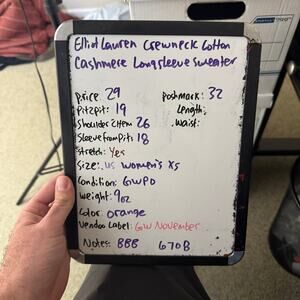 Elliot Lauren Crewneck Cotton
Cashmere Longsleeve Sweater
price: 29
poshmark: 32
Pit2pit: 19
Length:
Shoulder2Hem 26
Waist:
Sleeve from Pit: 18
Stretch: Yes
Size: US Women's XS
Condition: GWPO
Weight: 9oz
Color: orange
Vendoo Label: GW November
Notes: BBB 670B